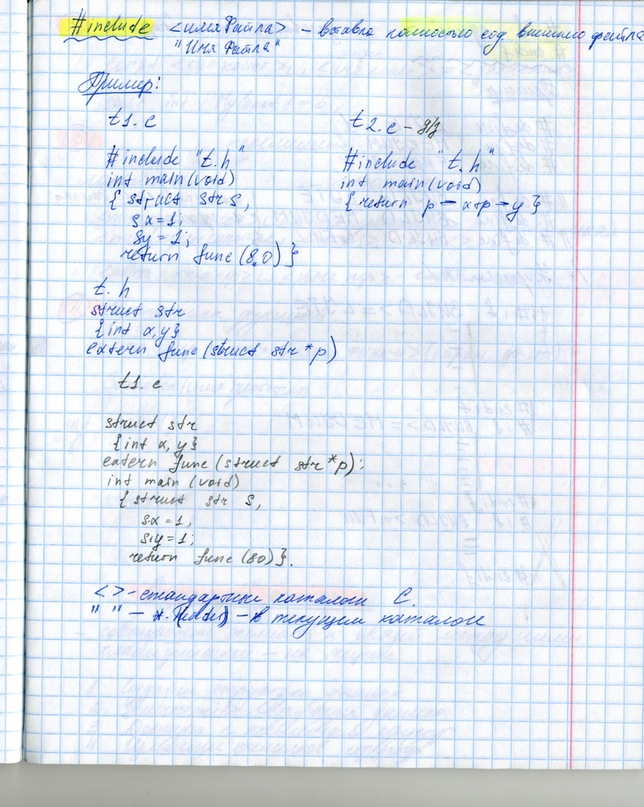 #include <имя Файла> - вставка полностью код внешнего файла
"Имя Файла"
Пример:
t1.c
#include "t.h"
int main(void)
{ struct str s,
s x=1;
s y=1;
return func (8,0) }
t2.c -
#include "t.h"
int main(void)
{ return p - x+p → y }
t.h
struct str
{int x,y}
extern func(struct str *p)
t1.c
struct str
{int x,y}
extern func (struct str *p):
int main (void)
{ struct str s,
s.x=1,
s.y=1;
return func (80) }.
< > - стандартные каталоги C.
" " - в текущем каталоге